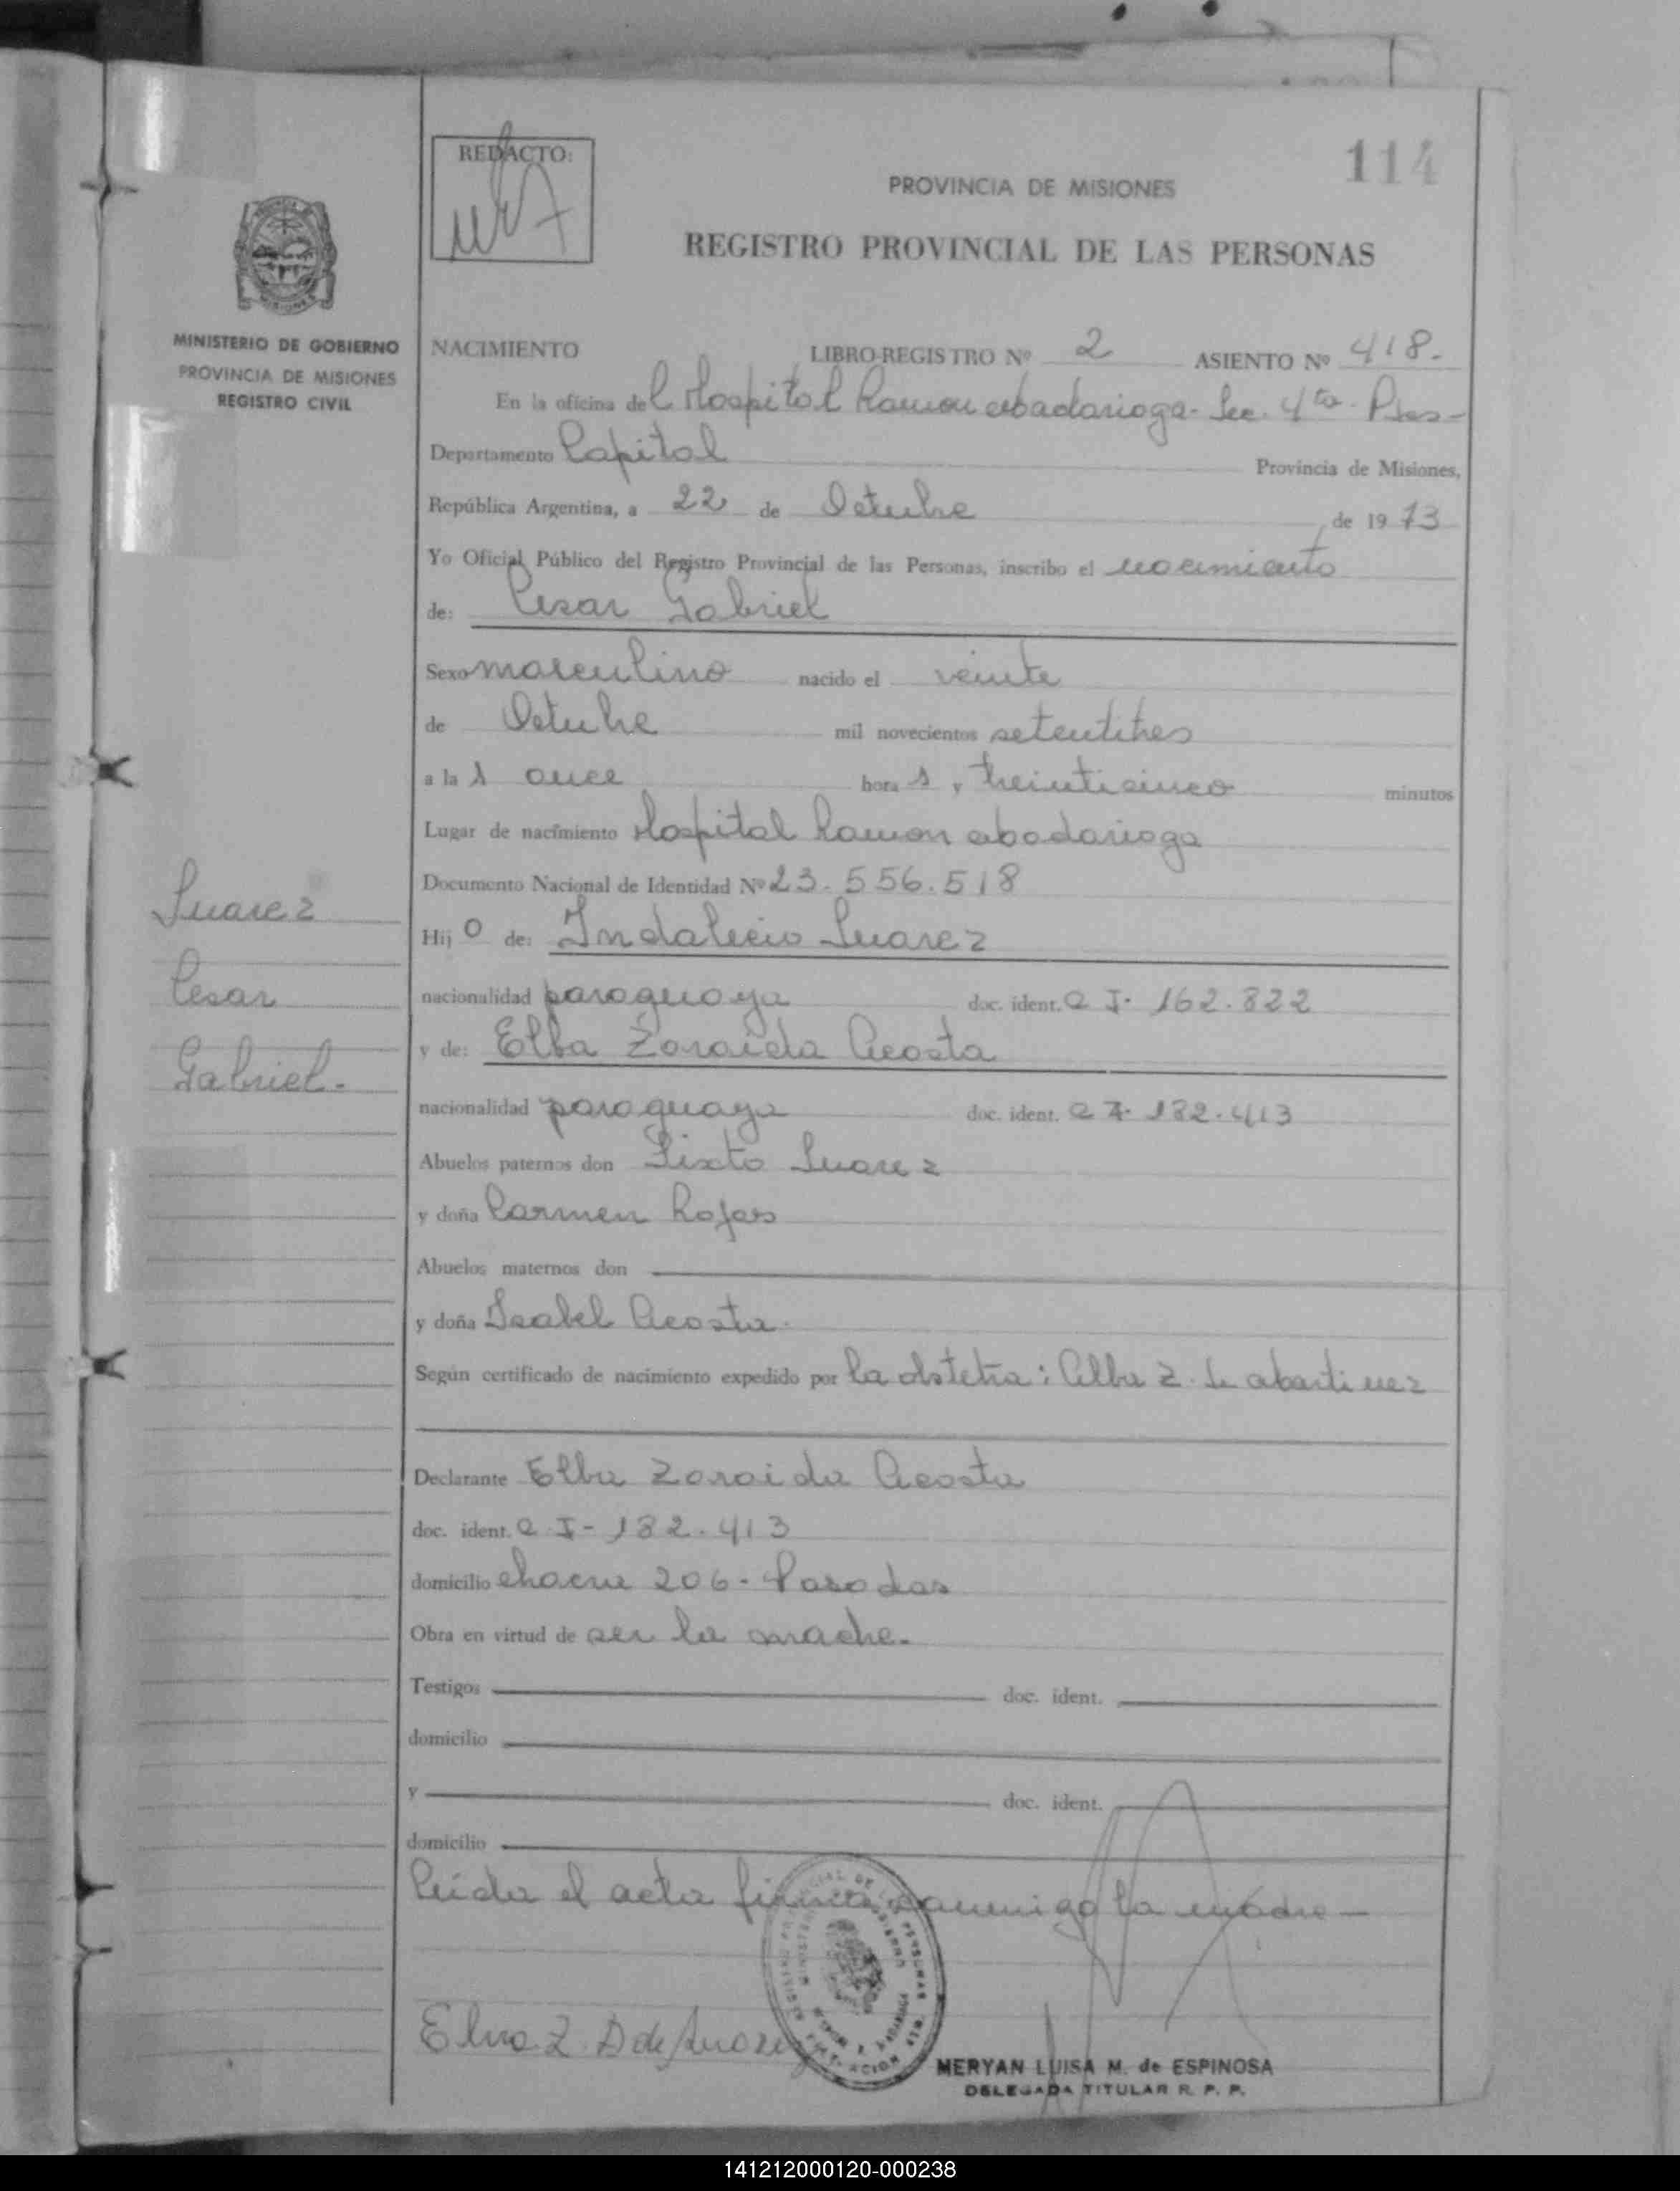 114
REDACTO:
PROVINCIA DE MISIONES
REGISTRO PROVINCIAL DE LAS PERSONAS
MINISTERIO DE GOBIERNO
PROVINCIA DE MISIONES
REGISTRO CIVIL
NACIMIENTO LIBRO-REGISTRO Nº 2 ASIENTO Nº 418.
En la oficina del Hospital Ramon Madariaga - Sec. 4ta - Pdas -
Departamento Capital Provincia de Misiones,
República Argentina, a 22 de Octubre de 1973
Yo Oficial Público del Registro Provincial de las Personas, inscribo el nacimiento
de: Cesar Gabriel
Sexo masculino nacido el veinte
de Octubre mil novecientos setentitres
a la s once hora s y treinticinco minutos
Lugar de nacimiento Hospital Ramon Madariaga
Documento Nacional de Identidad Nº 23.556.518
Suarez
Cesar
Gabriel.
Hij o de: Indalecio Suarez
nacionalidad paraguaya doc. ident. C I. 162.822
y de: Elba Zoraida Acosta
nacionalidad paraguaya doc. ident. C I. 182.413
Abuelos paternos don Sixto Suarez
y doña Carmen Rojas
Abuelos maternos don
y doña Isabel Acosta.
Según certificado de nacimiento expedido por la obstetra: Alba Z. de Martinez
Declarante Elba Zoraida Acosta
doc. ident. C I - 182.413
domicilio chacra 206 - Posadas
Obra en virtud de ser la madre.
Testigos doc. ident.
domicilio
y doc. ident.
domicilio
Leida el acta firma conmigo la madre -
Elva Z. A de Suarez
MERYAN LUISA M. de ESPINOSA
DELEGADA TITULAR R. P. P.
141212000120-000238